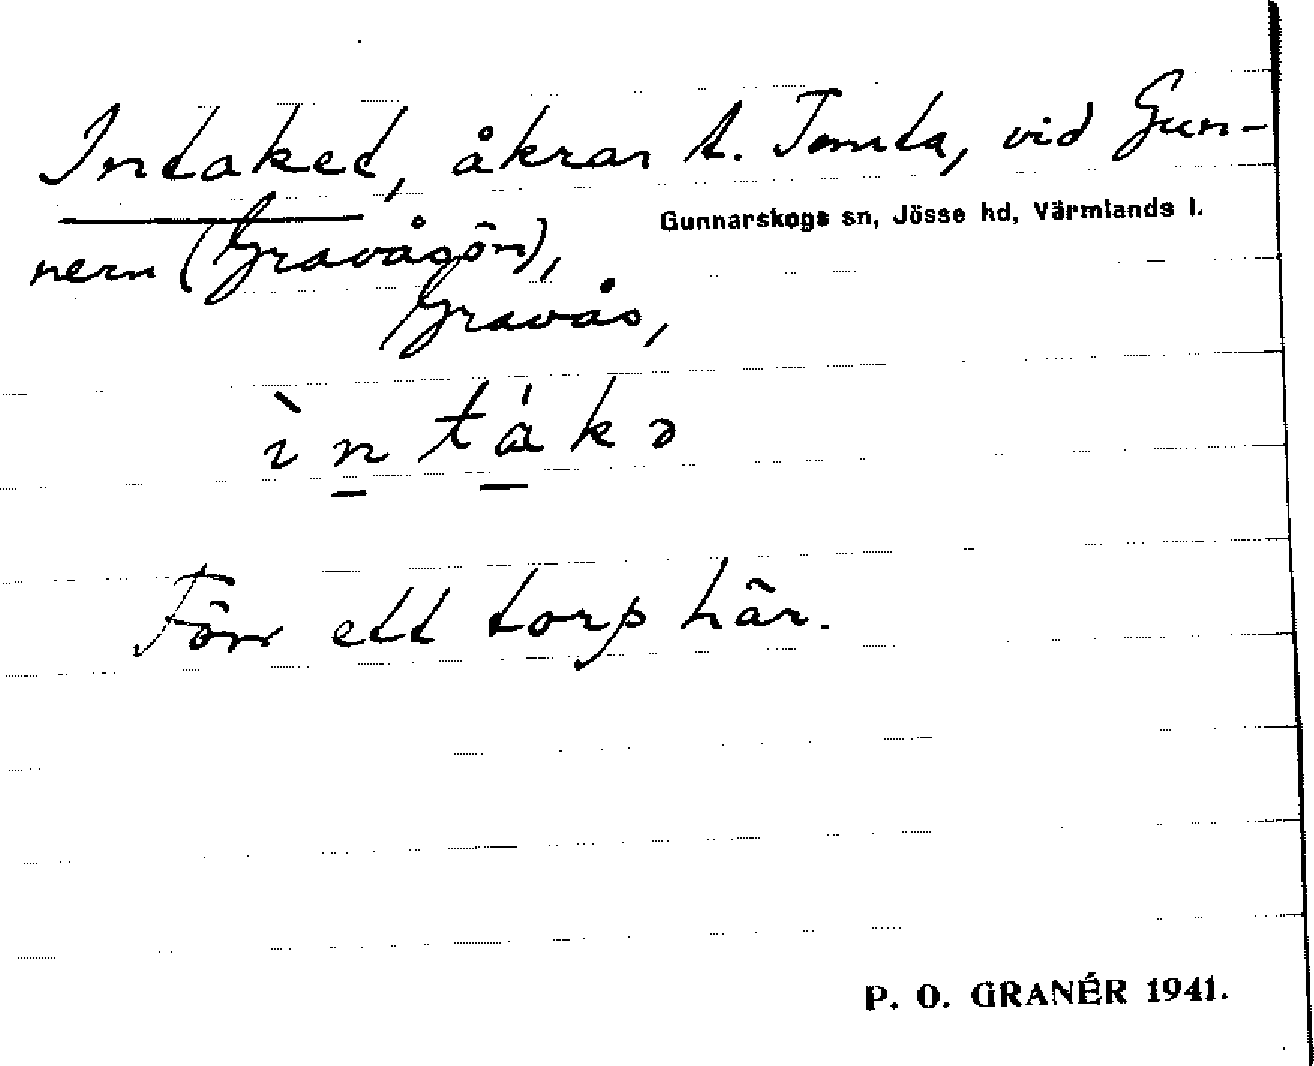 Intaket, åkrar t. Tomta, vid Gun-
Gunnarskogs sn, Jösse hd, Värmlands l.
nern (Gravåsön),
Gravås,
ìntákə
Förr ett torp här.
P. O. GRANÉR 1941.